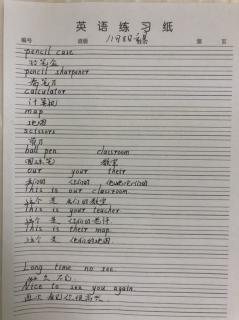 英语练习纸
编号 班级 姓名 第 页
pencil case
铅笔盒
pencil sharpener
卷笔刀
calculator
计算器
map
地图
scissors
剪刀
ball pen classroom
圆珠笔 教室
our your their
我们的 你们的 他她它们的
This is our classroom.
这个 是 我们的 教室
This is your teacher
这个 是 你们的 老师
This is their map
这个 是 他们的地图.
Long time no see.
好久不见
Nice to see you again.
再次 看见你很高兴